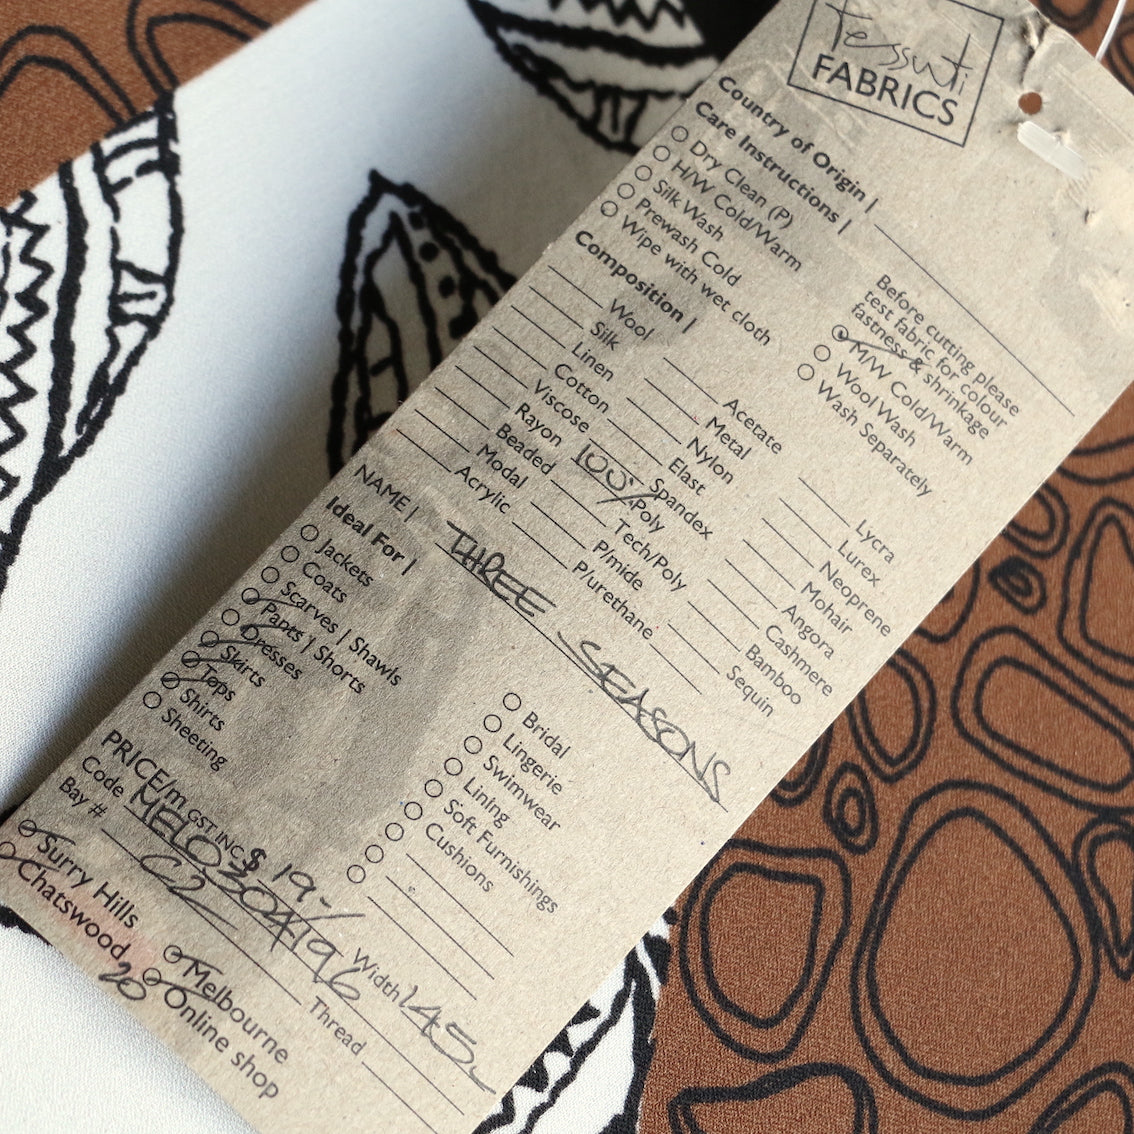 Tessuti
FABRICS
Country of Origin |
Care Instructions |
Dry Clean (P)
H/W Cold/Warm
Silk Wash
Prewash Cold
Wipe with wet cloth
Before cutting please
test fabric for colour
fastness & shrinkage
M/W Cold/Warm
Wool Wash
Wash Separately
Composition |
Wool
Silk
Linen
Cotton
Viscose
Rayon
Beaded
Modal
Acrylic
Acetate
Metal
Nylon
Elast
Spandex
100% Poly
Tech/Poly
P/mide
P/urethane
Lycra
Lurex
Neoprene
Mohair
Angora
Cashmere
Bamboo
Sequin
NAME | THREE SEASONS
Ideal For |
Jackets
Coats
Scarves | Shawls
Pants | Shorts
Dresses
Skirts
Tops
Shirts
Sheeting
Bridal
Lingerie
Swimwear
Lining
Soft Furnishings
Cushions
PRICE/m GST INC $ 19-/ Width 145
Code MELO304196 Thread
Bay # C2
Surry Hills
Chatswood
Melbourne
Online shop
20